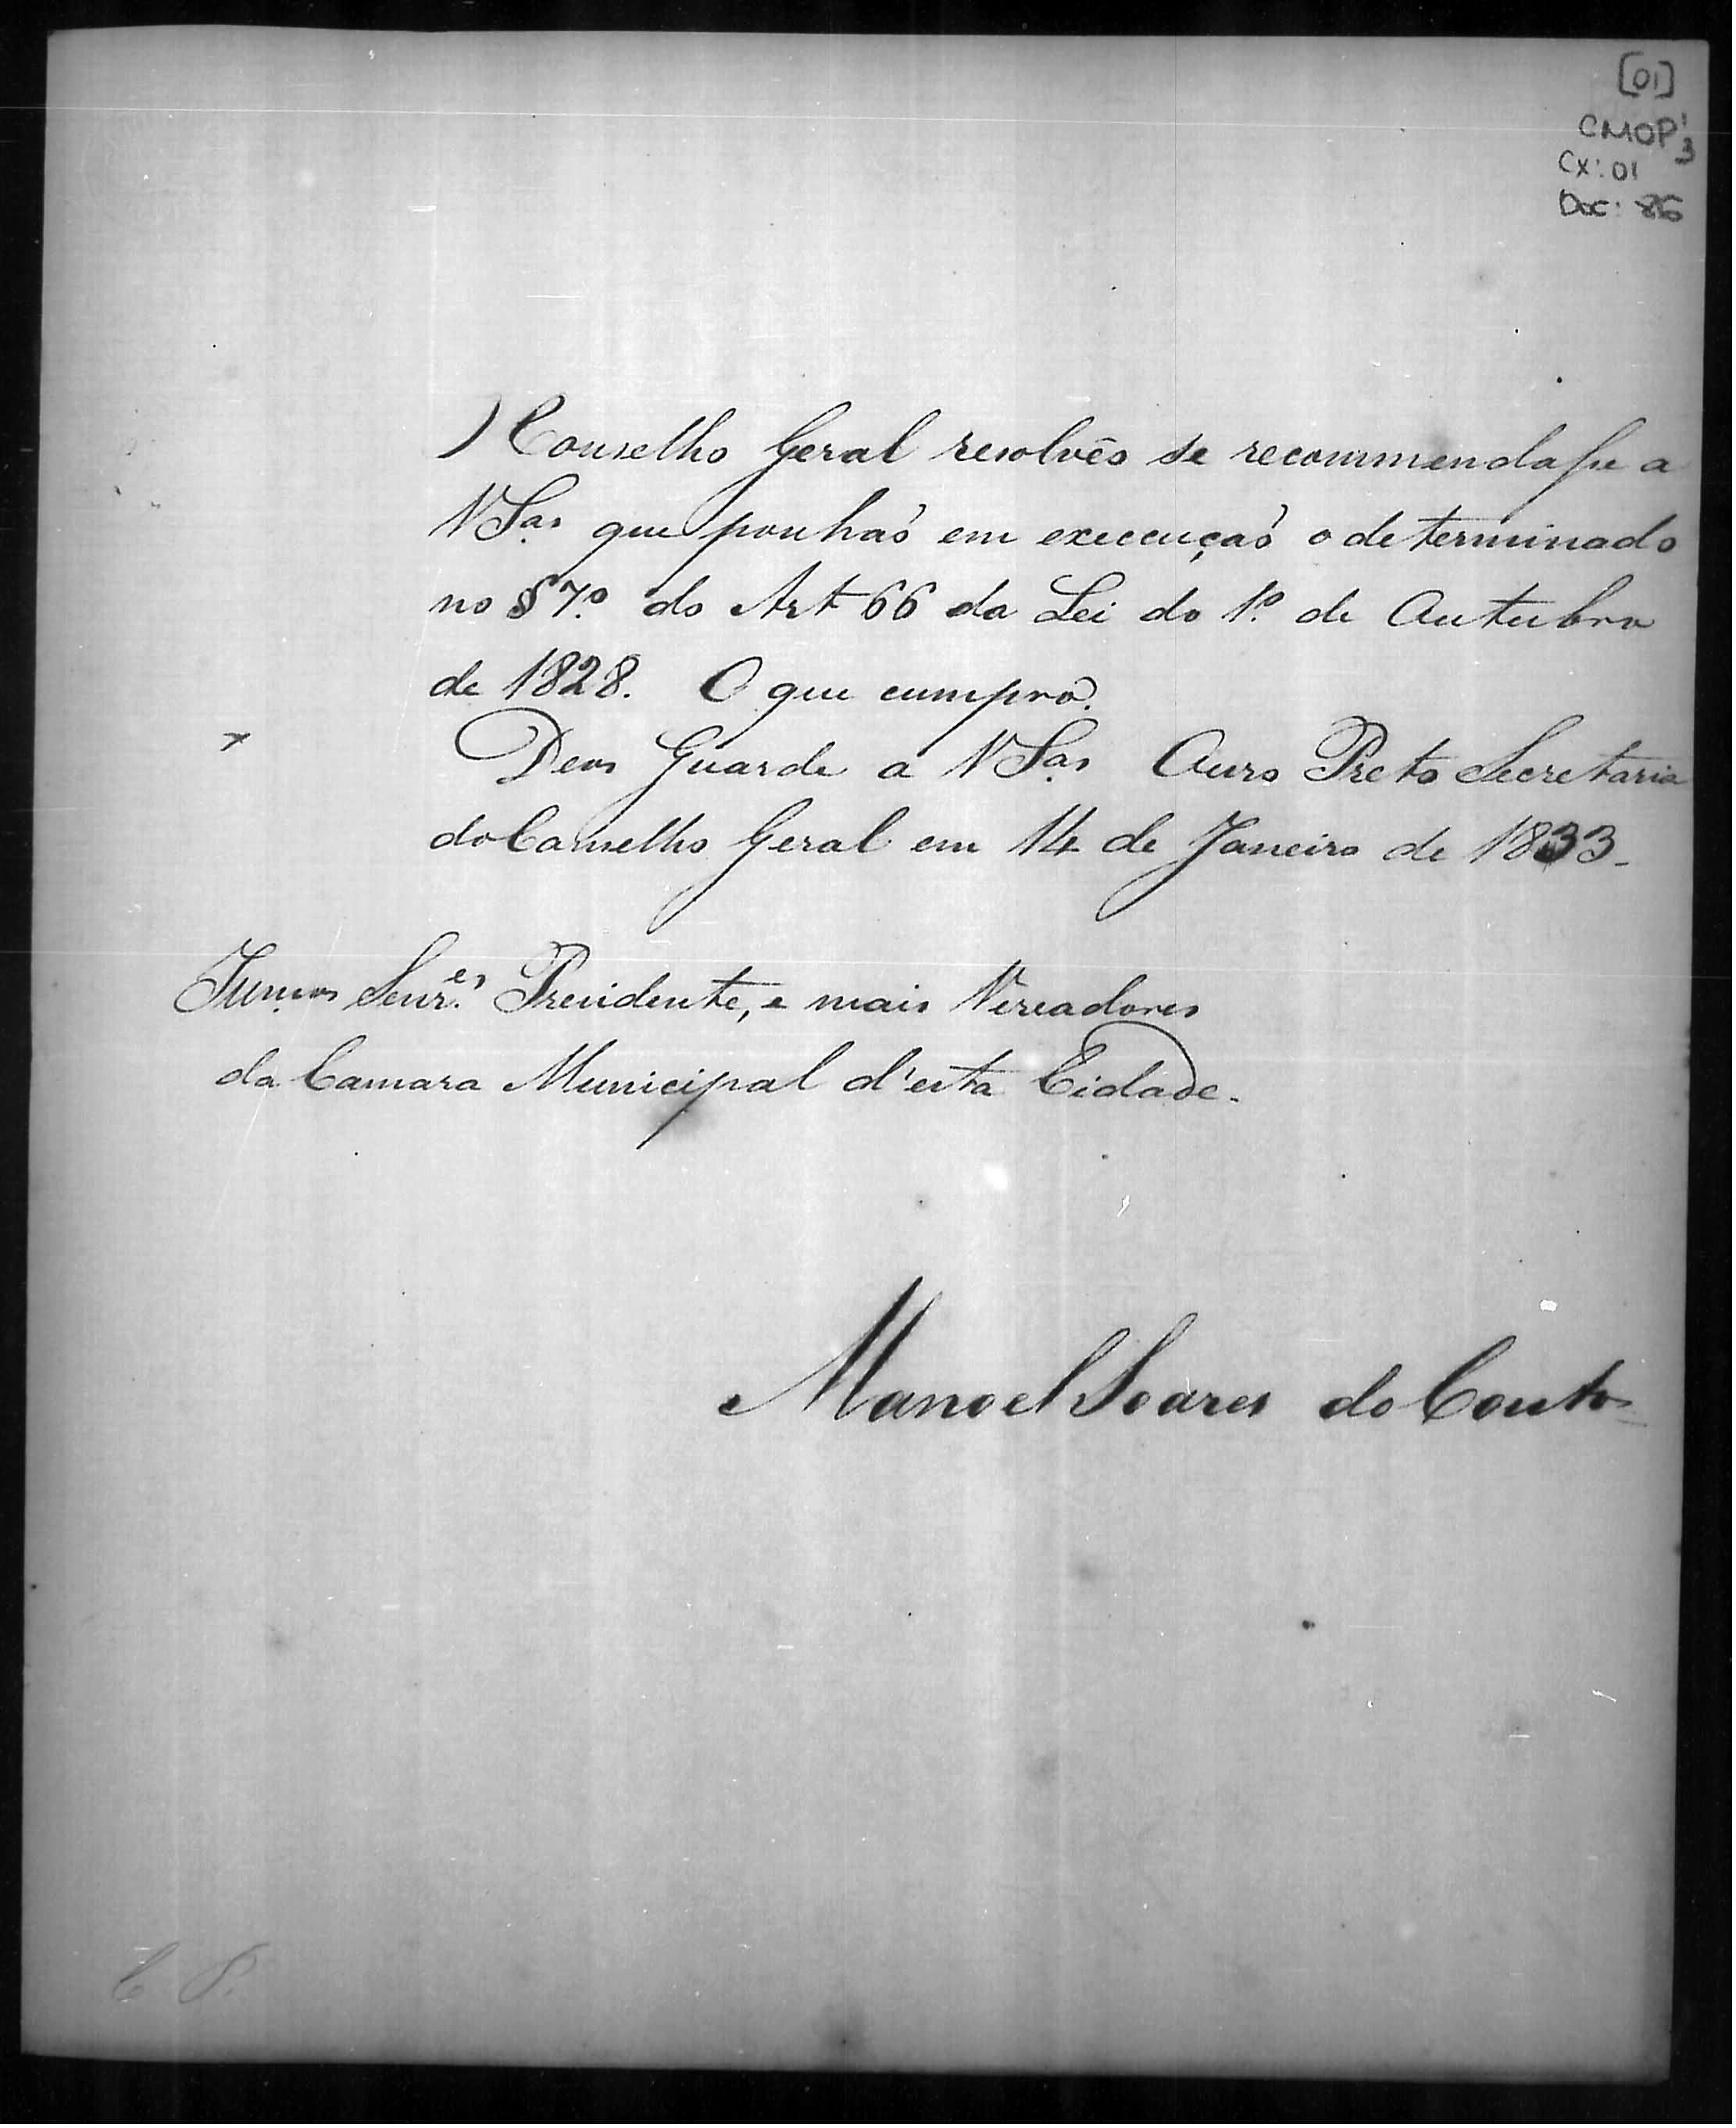 [01]
CMOP 3
Cx: 01
Doc: 86
O Conselho Geral resolvêo se recommendasse a
V Sas que ponhaõ em execuçaõ o determinado
no § 7º do Art 66 da Lei do 1º de Outubro
de 1828. O que cumpro.
Deos Guarde a V Sas Ouro Preto Secretaria
do Conselho Geral em 14 de Janeiro de 1833-
Illmos Senres Presidente, e mais Vereadores
da Camara Municipal d'esta Cidade.
Manoel Soares do Couto